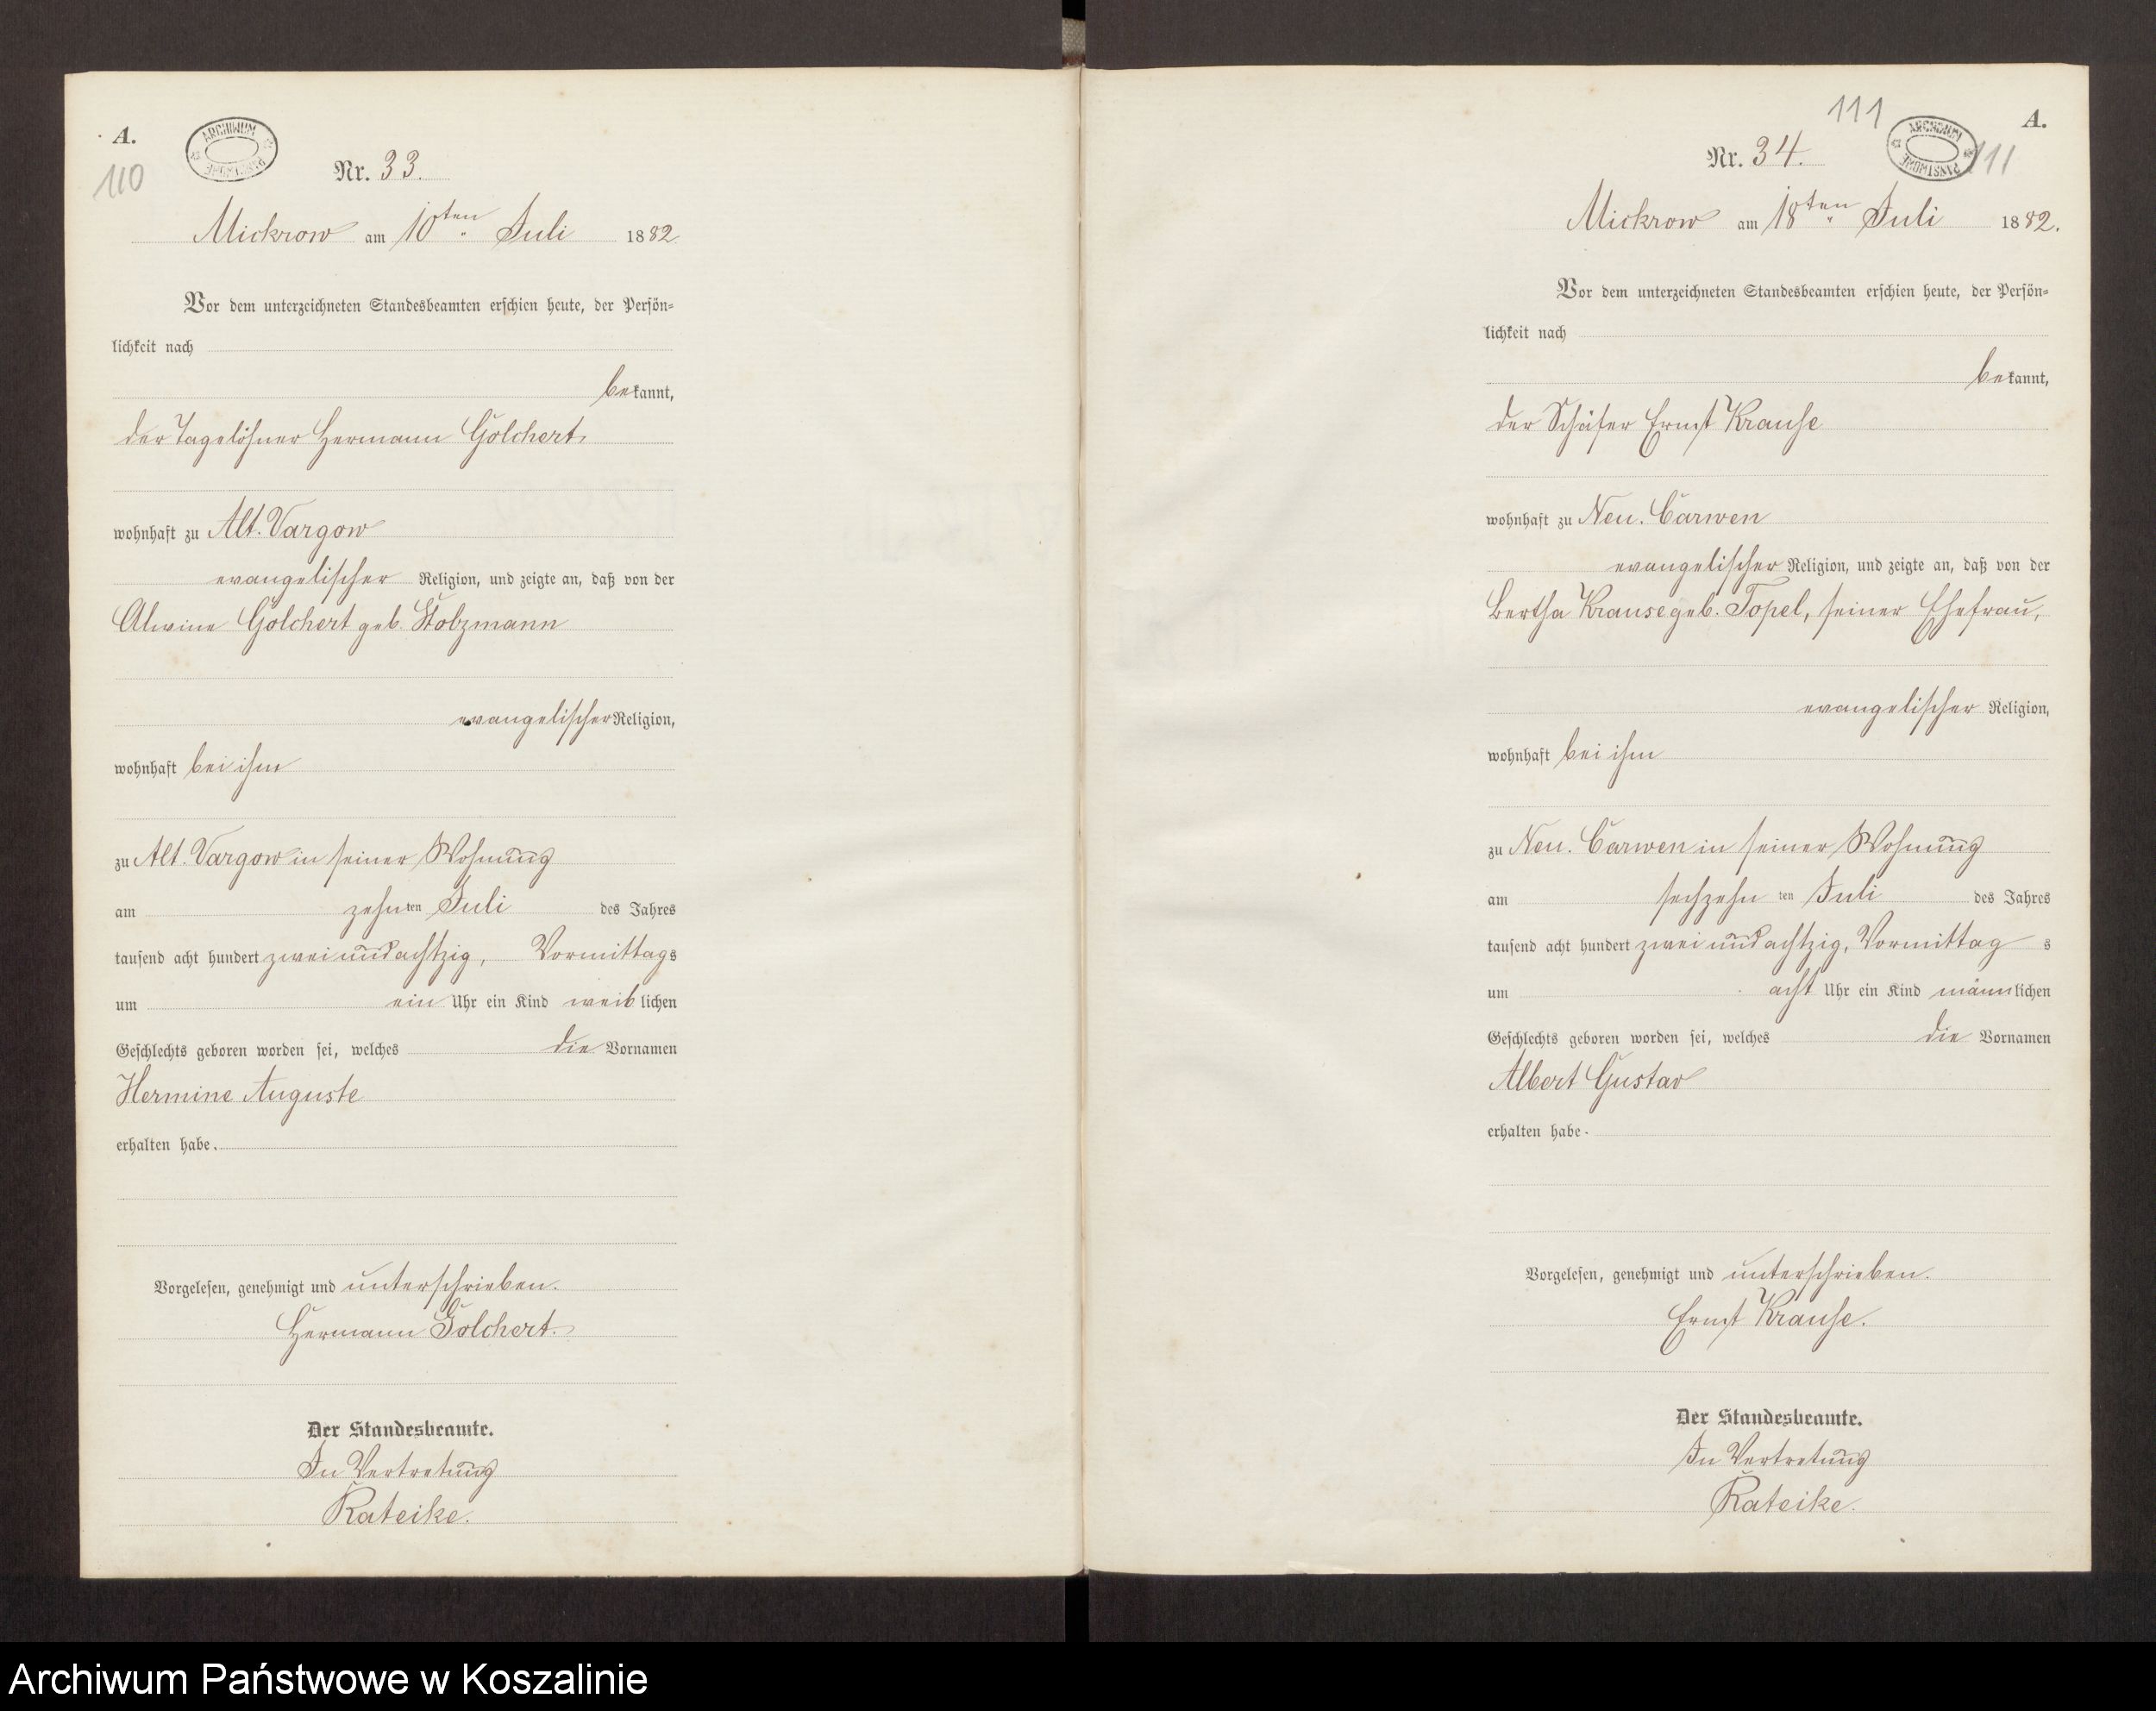 A.
ARCHIWUM PAŃSTWOWE
110
Nr. 33.
Mickrow am 10ten Juli 1882
Vor dem unterzeichneten Standesbeamten erschien heute, der Persön-
lichkeit nach
bekannt,
der Tagelöhner Hermann Golchert
wohnhaft zu Alt. Vargow
evangelischer Religion, und zeigte an, daß von der
Alwine Golchert geb. Stolzmann
evangelischer Religion,
wohnhaft bei ihm
zu Alt. Vargow in seiner Wohnung
am zehnten Juli des Jahres
tausend acht hundert zwei und achtzig, Vormittags
um ein Uhr ein Kind weiblichen
Geschlechts geboren worden sei, welches die Vornamen
Hermine Auguste
erhalten habe.
Vorgelesen, genehmigt und unterschrieben.
Hermann Golchert.
Der Standesbeamte.
In Vertretung
Rateike.
111
A.
Nr. 34.
ARCHIWUM PAŃSTWOWE
111
Mickrow am 18ten Juli 1882.
Vor dem unterzeichneten Standesbeamten erschien heute, der Persön-
lichkeit nach
bekannt,
der Schäfer Ernst Krause
wohnhaft zu Neu. Carwen
evangelischer Religion, und zeigte an, daß von der
Bertha Krause geb. Topel, seiner Ehefrau,
evangelischer Religion,
wohnhaft bei ihm
zu Neu. Carwen in seiner Wohnung
am sechzehnten Juli des Jahres
tausend acht hundert zwei und achtzig, Vormittags
um acht Uhr ein Kind männlichen
Geschlechts geboren worden sei, welches die Vornamen
Albert Gustav
erhalten habe.
Vorgelesen, genehmigt und unterschrieben.
Ernst Krause.
Der Standesbeamte.
In Vertretung
Rateike.
Archiwum Państwowe w Koszalinie